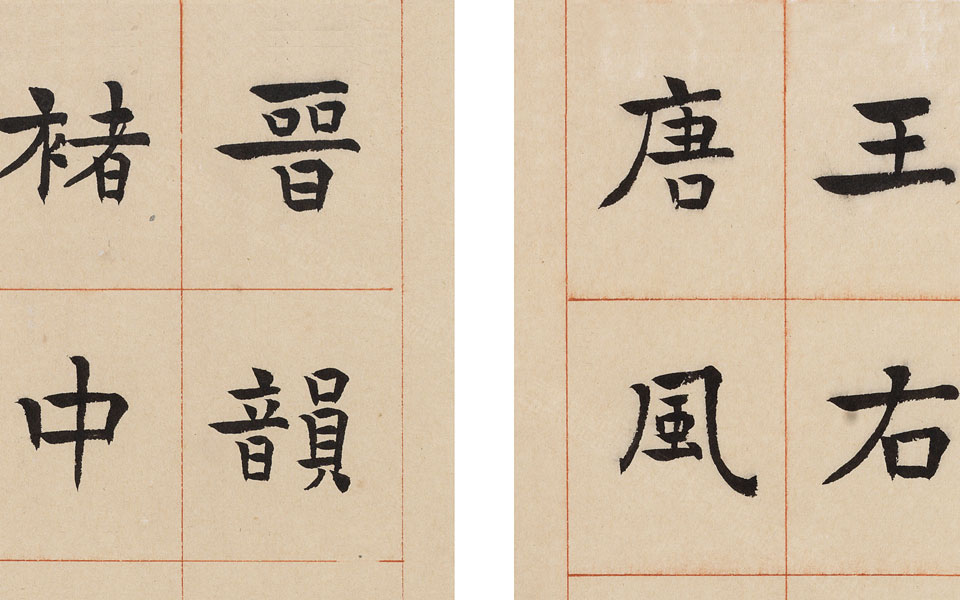 王右
唐風
晉韻
褚中